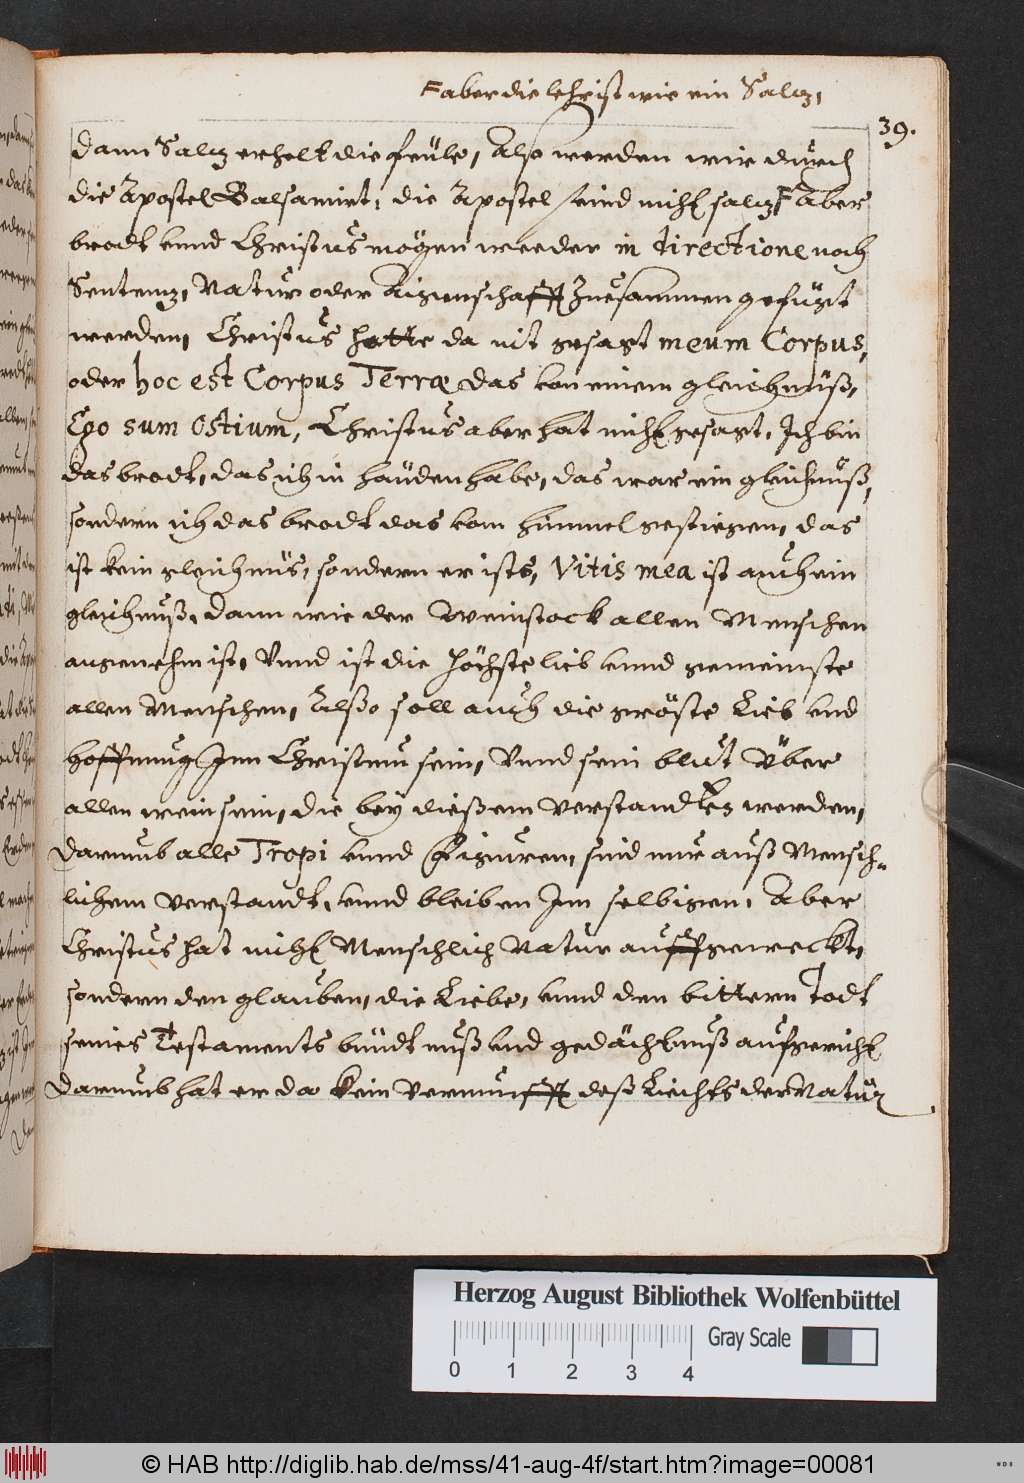 F aber die lehr ist wie ein Saltz,
39.
dann Saltz erhelt die feüle, Also werden wir durch
die Apostel Balsamirt, die Apostel seind nicht saltz F Aber
brodt vnnd Christus mögen weeder in directione noch
Sententz, Natur oder Aigenschafft Zuesammen gefügt
werden, Christus hette da nit gesagt meum Corpus,
oder hoc est Corpus Terræ das kein gleichnüß,
Ego sum Ostium, Christus aber hat nicht gesagt, Ich bin
das brodt, das ich in händen habe, das war ein gleichnuß,
sondern ich das brodt das vom himmel gestiegen, das
ist kein gleichnüs, sondern er ists, Vitis mea ist auch ein
gleichnuß, dann wie der Weinstock allen Menschen
angenehm ist, Vnnd ist die höchste lieb vnnd gemeinste
allen Menschen, Alßo soll auch die gröste Lieb vnd
hoffnung Inn Christum sein, Vnnd sein blut Vber
allen wein sein, die bey dießem verstandt werden,
Darumb alle Tropi vnnd Figuren, sind nur auß Mensch-
lichem verstandt, vnnd bleiben Inn selbigen, Aber
Christus hat nicht Menschlich Natur auffgeweckt,
sondern den glauben, die Liebe, vnnd den bittern Todt
seines Testaments bündtnuß vnd gedächtnuß aufgericht
Darumb hat er da kein vernunfft deß Liechts der Natur
Herzog August Bibliothek Wolfenbüttel
Gray Scale
0 1 2 3 4
© HAB http://diglib.hab.de/mss/41-aug-4f/start.htm?image=00081